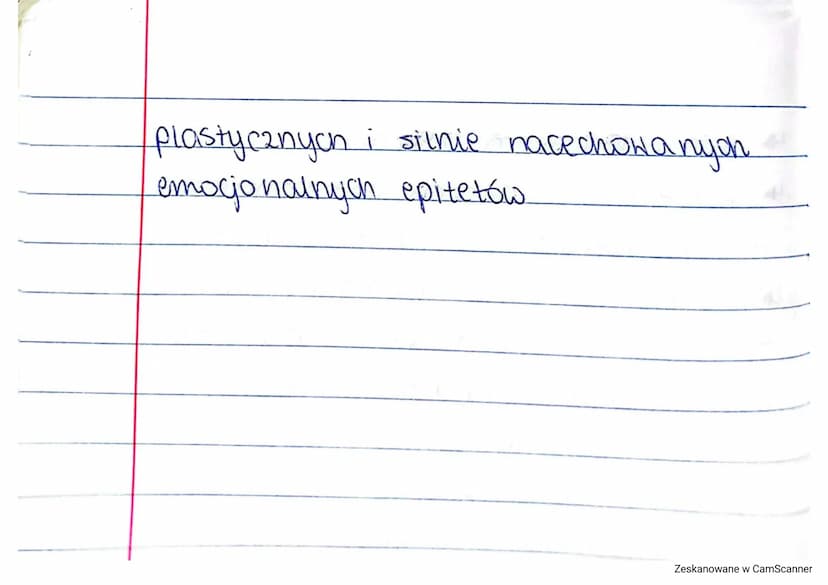 plastycznych i silnie nacechowanych
emocjonalnych epitetów
Zeskanowane w CamScanner